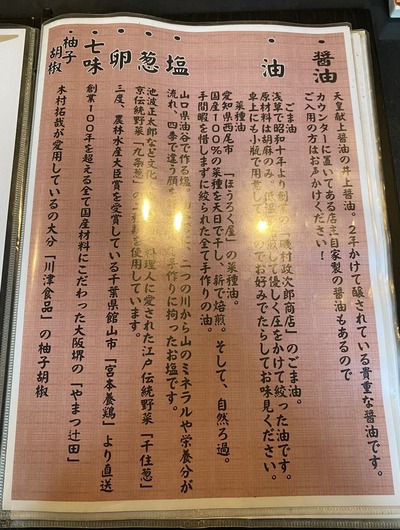 醤油
天皇献上醤油の井上醤油。2年かけて醸されている貴重な醤油です。
カウンターに置いてある店主自家製の醤油もあるので
ご入用の方はお声かけください！
油
ごま油
浅草で昭和十年より創業の「磯村政次郎商店」のごま油。
原材料は胡麻のみ。低温焙煎して優しく圧をかけて絞った油です。
卓上にも小瓶で用意してあるのでお好みでたらしてお味見ください。
菜種油
愛知県西尾市 「ほうろく屋」の菜種油。
国産100％の菜種を天日で干し、薪で焙煎。そして、自然ろ過。
手間暇を惜しまずに絞られた全て手作りの油。
塩
山口県油谷で作る塩。二つの川から山のミネラルや栄養分が
流れ、四季で違う顔を手作りに拘ったお塩です。
葱
池波正太郎など文化料理人に愛された江戸伝統野菜「千住葱」
京伝統野菜「九条葱」を使用しています。
卵
三度、農林水産大臣賞を受賞している千葉県館山市「宮本養鶏」より直送
七味
創業100年を超える全て国産材料にこだわった大阪堺の「やまつ辻田」
柚子胡椒
木村拓哉が愛用しているの大分「川津食品」の柚子胡椒